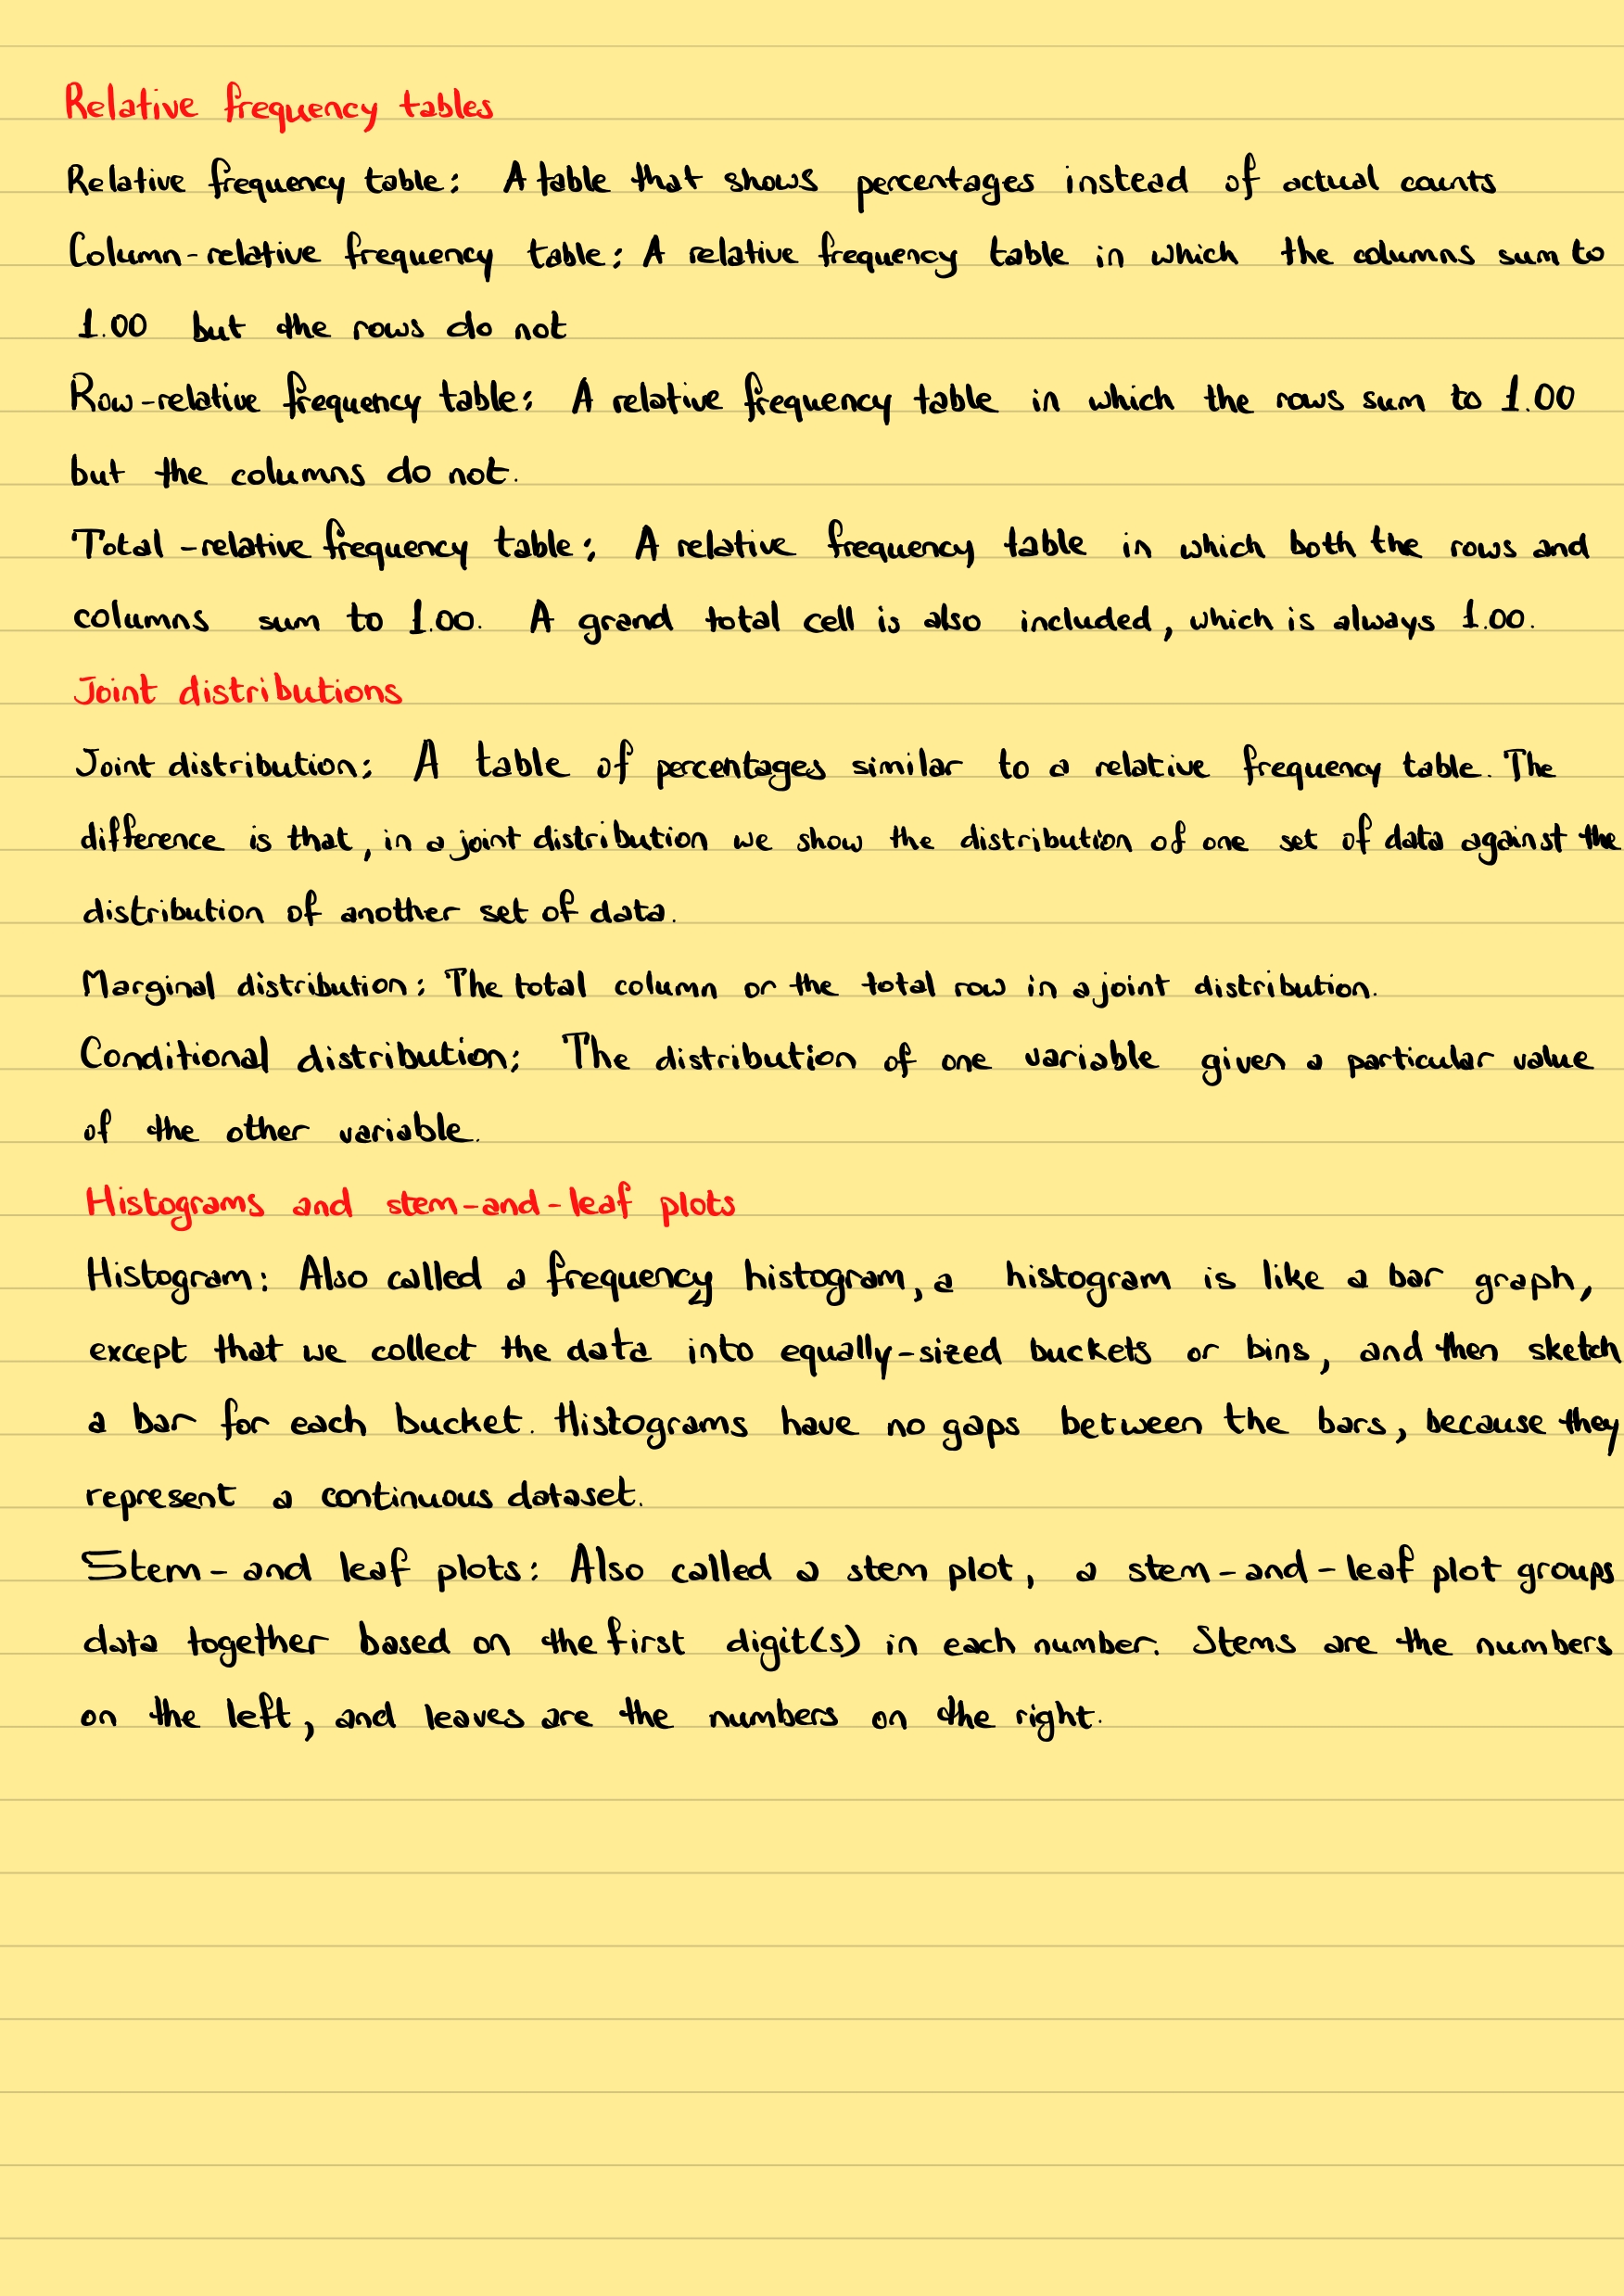 Relative frequency tables
Relative frequency table: A table that shows percentages instead of actual counts
Column-relative frequency table: A relative frequency table in which the columns sum to
1.00 but the rows do not
Row-relative frequency table: A relative frequency table in which the rows sum to 1.00
but the columns do not.
Total-relative frequency table: A relative frequency table in which both the rows and
columns sum to 1.00. A grand total cell is also included, which is always 1.00.
Joint distributions
Joint distribution: A table of percentages similar to a relative frequency table. The
difference is that, in a joint distribution we show the distribution of one set of data against the
distribution of another set of data.
Marginal distribution: The total column or the total row in a joint distribution.
Conditional distribution: The distribution of one variable given a particular value
of the other variable.
Histograms and stem-and-leaf plots
Histogram: Also called a frequency histogram, a histogram is like a bar graph,
except that we collect the data into equally-sized buckets or bins, and then sketch
a bar for each bucket. Histograms have no gaps between the bars, because they
represent a continuous dataset.
Stem-and leaf plots: Also called a stem plot, a stem-and-leaf plot groups
data together based on the first digit(s) in each number. Stems are the numbers
on the left, and leaves are the numbers on the right.